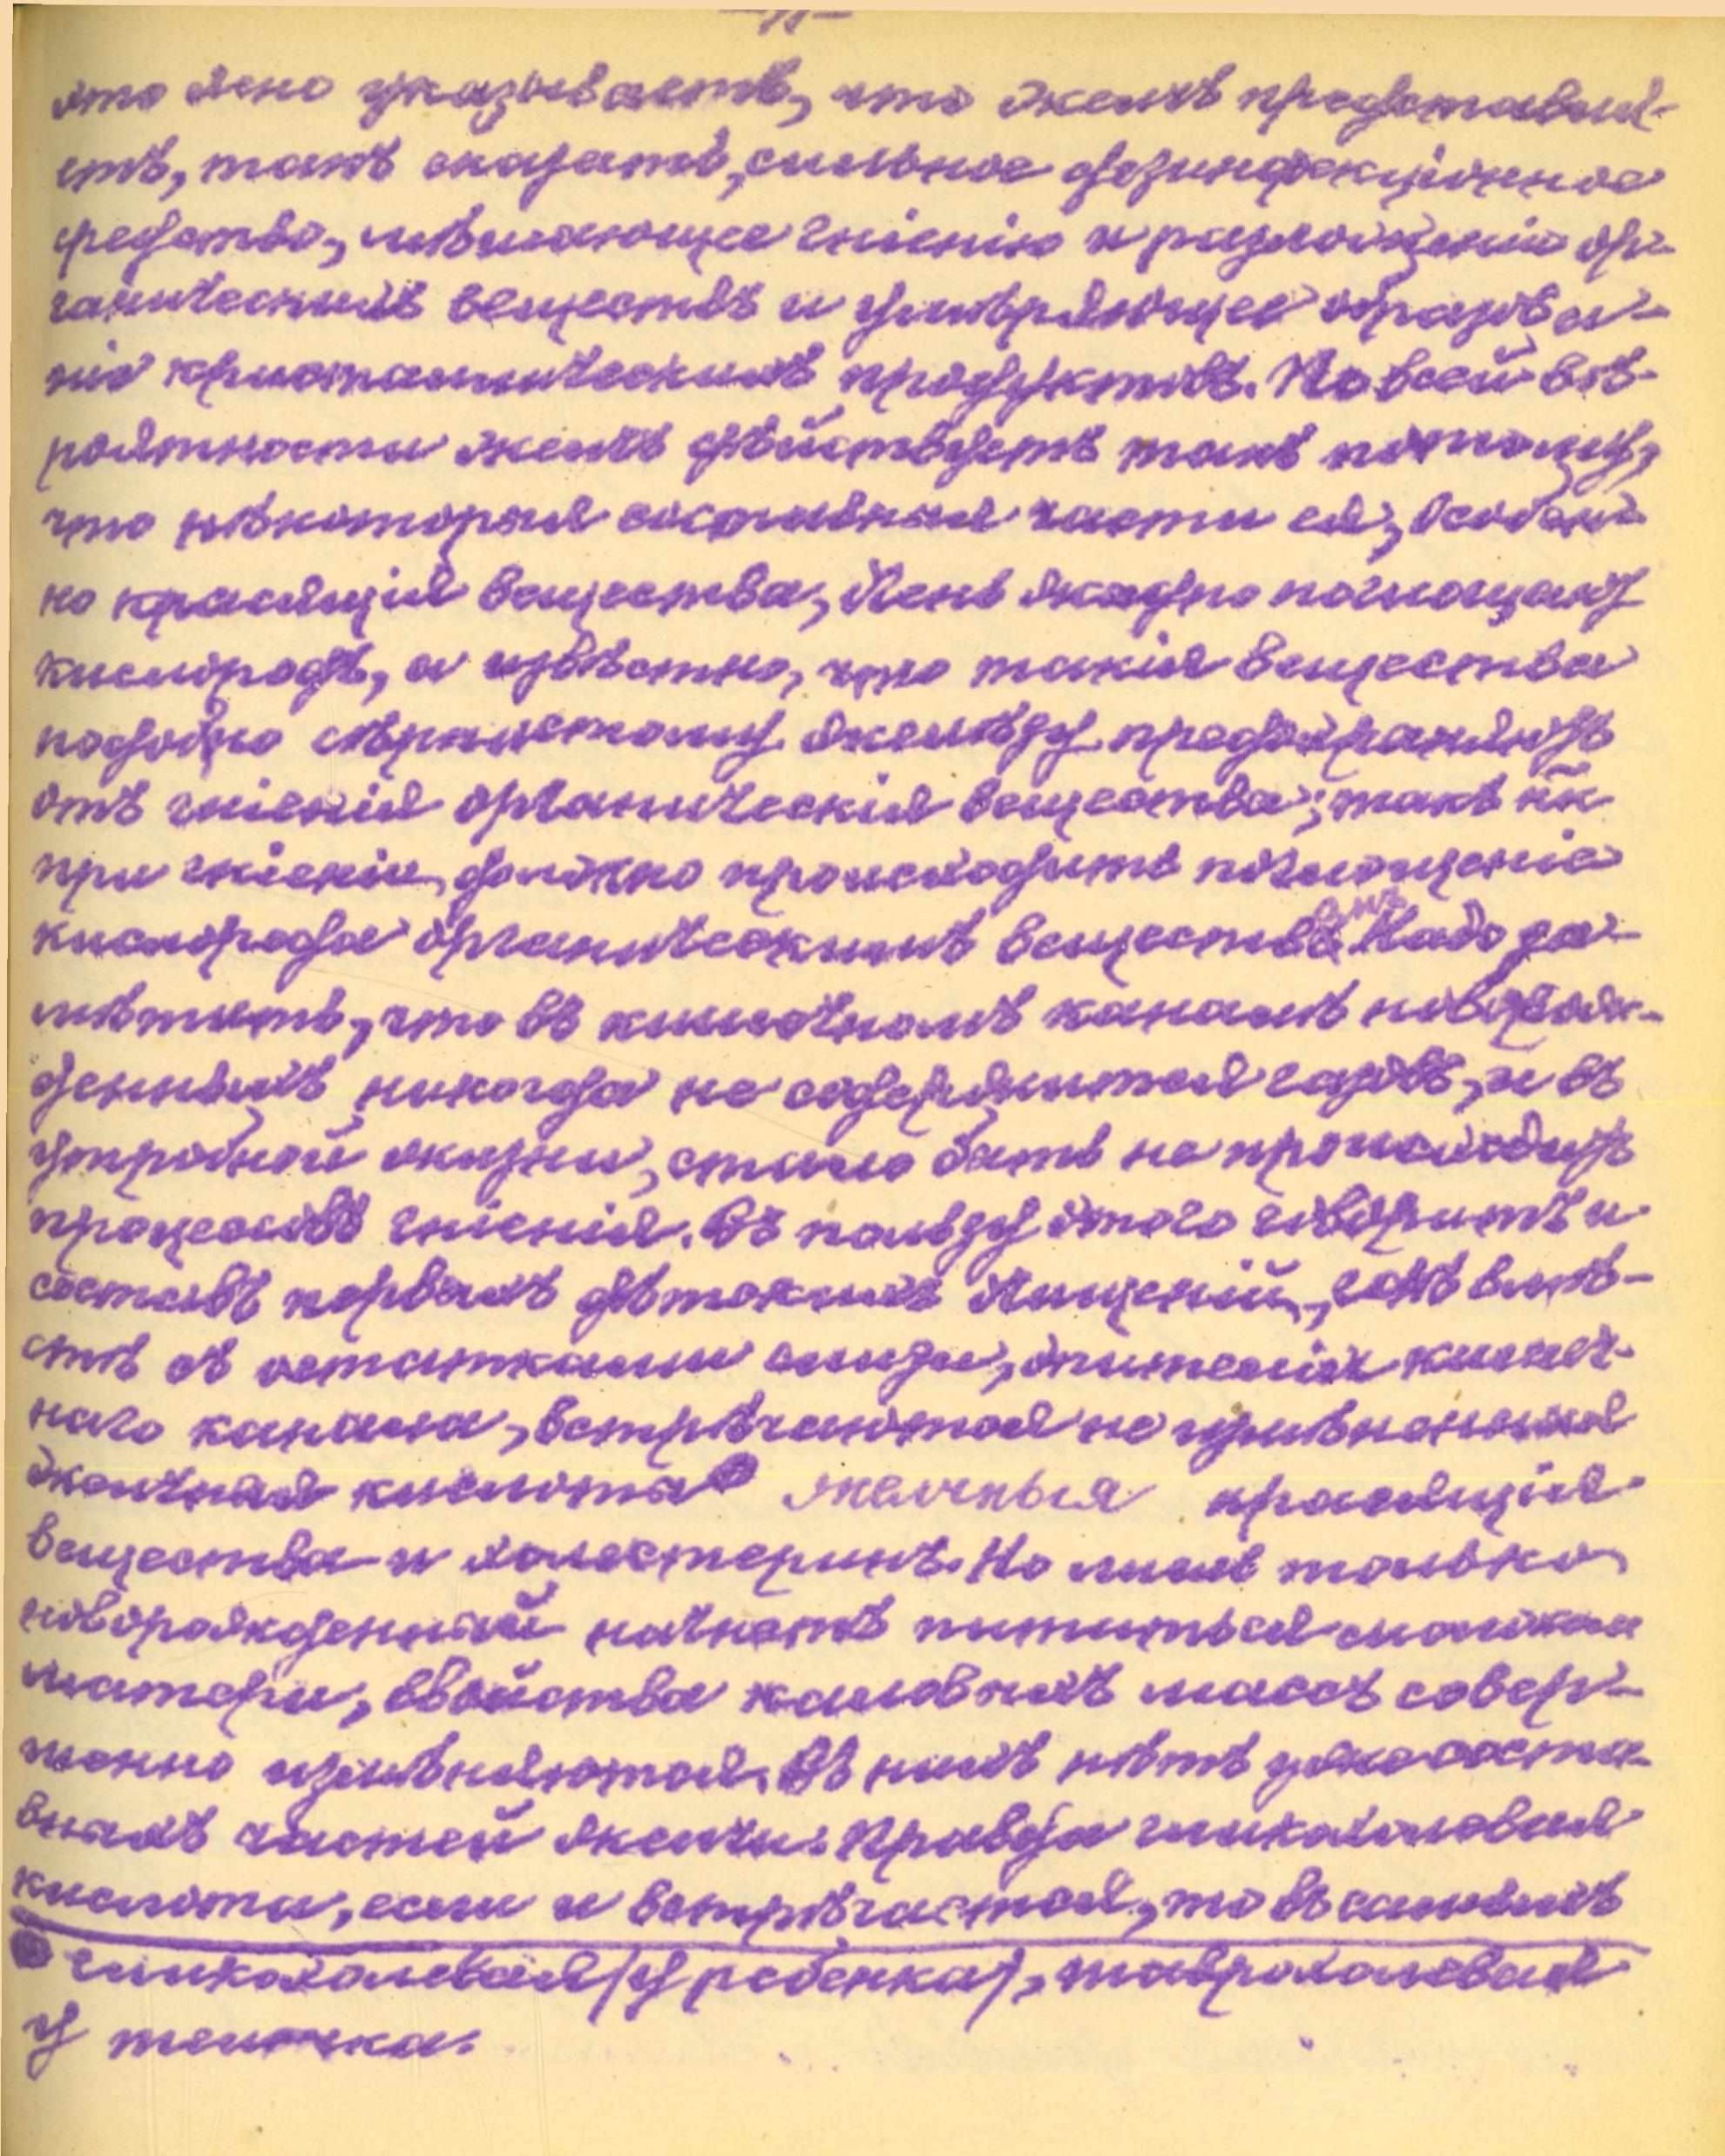 это ясно указываетъ, что желчь представля-
етъ, такъ сказать, сильное дезинфекціонное
средство, мѣшающее гніенію и разложенію ор-
ганическихъ веществъ и умѣряющее образова-
ніе кристаллическихъ продуктовъ. По всей вѣ-
роятности желчь дѣйствуетъ такъ потому,
что нѣкоторыя составныя части ея, особен-
но красящія вещества, очень жадно поглощаютъ
кислородъ, а извѣстно, что такія вещества
подобно сѣрнистому желѣзу предохраняютъ
отъ гніенія органическія вещества; такъ кк
при гніеніи должно происходить поглощеніе
кислорода органическимъ веществомъ. Надо за-
мѣтить, что въ кишечномъ каналѣ новорож-
денныхъ никогда не содержится газовъ, и въ
утробной жизни, стало быть не происходитъ
процессовъ гніенія. Въ пользу этого говоритъ и
составъ первыхъ дѣтскихъ изверженій, гдѣ вмѣ-
стѣ съ остатками слизи, эпителія кишеч-
наго канала, встрѣчаются не измѣненныя
желчная кислота желчныя красящія
вещества и холестеринъ. Но лишь только
новорожденный начнетъ питаться молокомъ
матери, свойства каловыхъ массъ совер-
шенно измѣняются. Въ нихъ нѣтъ уже соста-
вныхъ частей желчи. Правда гликохоловая
кислота, если и встрѣчается, то въ самыхъ
гликохолевая (у ребенка), таврохолевая
у теленка.